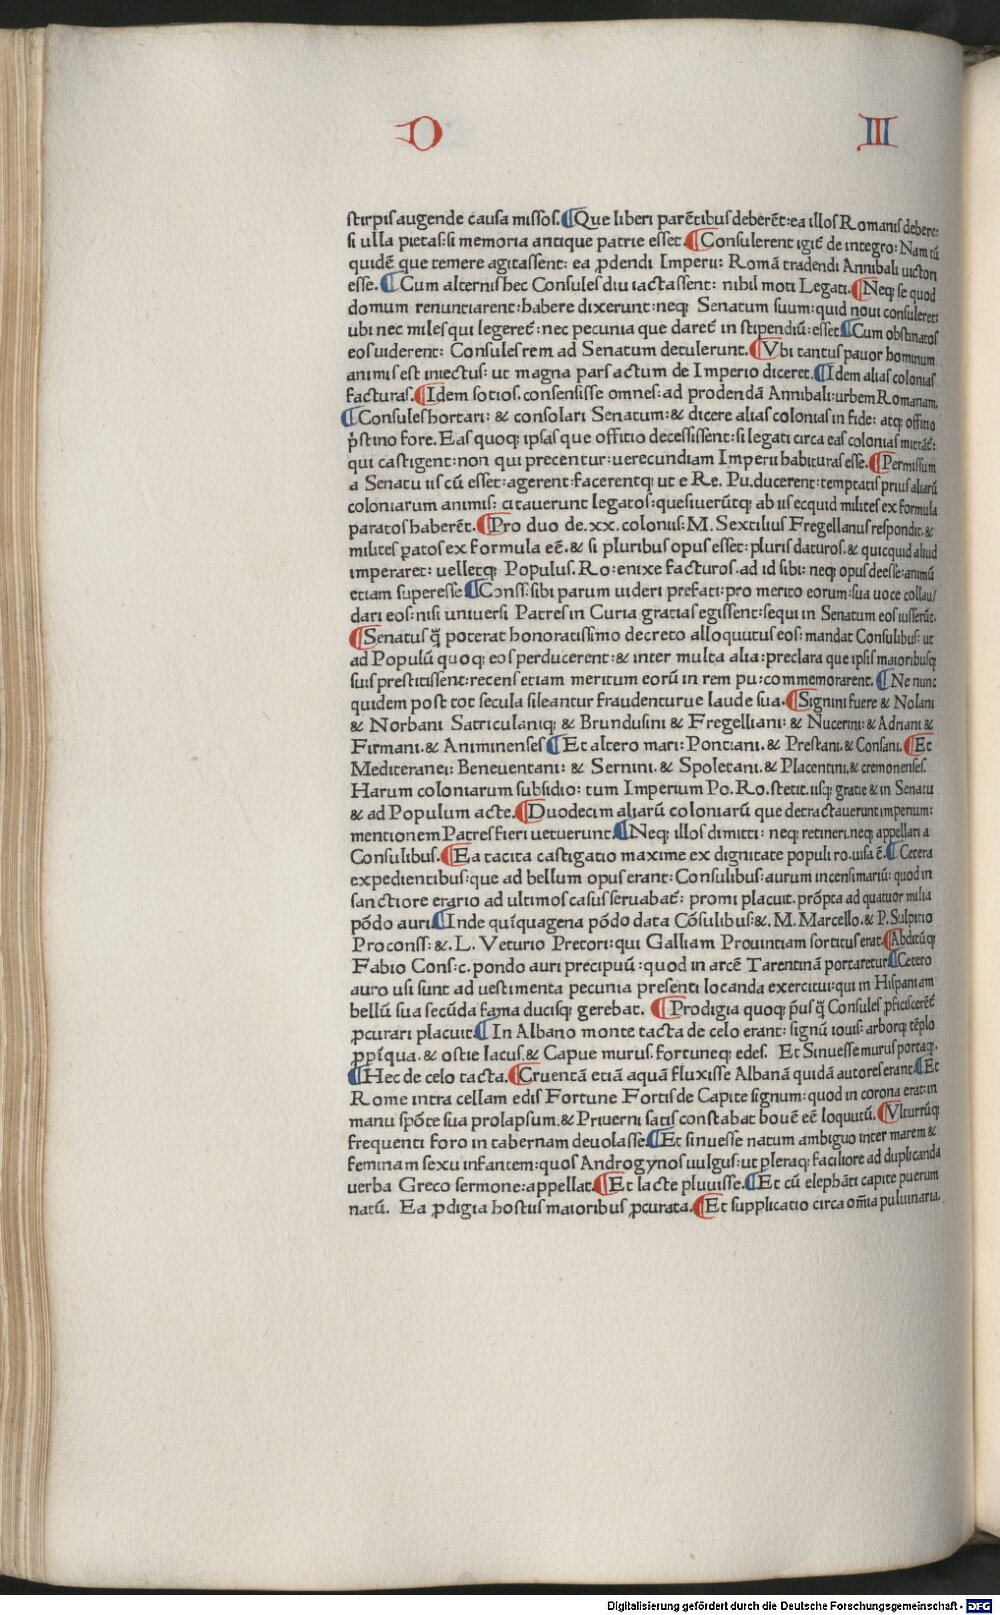 D III
stirpis augende causa missos.¶Que liberi parẽtibus deberẽt:ea illos Romanis debere:
si ulla pietas:si memoria antique patrie esset.¶Consulerent igit̃ de integro: Nam tũ
quidẽ que temere agitassent: ea ꝓdendi Imperii: Romã tradendi Annibali uictori
esse.¶Cum alternis hec Consules diu iactassent: nihil moti Legati.¶Neqꝫ se quod
domum renuntiarent:habere dixerunt:neqꝫ Senatum suum:quid noui consuleret:
ubi nec miles qui legeret̃:nec pecunia que daret̃ in stipendiũ:esset¶Cum obstinatos
eos uiderent: Consules rem ad Senatum detulerunt.¶Vbi tantus pauor hominum
animis est iniectus: ut magna pars actum de Imperio diceret.¶Idem alias colonias
facturas.¶Idem sotios.consensisse omnes:ad prodendã Annibali:urbem Romanam.
¶Consules hortari: & consolari Senatum:& dicere alias colonias in fide: atqꝫ offitio
p̓stino fore.Eas quoqꝫ ipsas que offitio decessissent:si legati circa eas colonias mittãt̃:
qui castigent:non qui precentur:uerecundiam Imperii habituras esse.¶Permissum
a Senatu iis cũ esset:agerent:facerentqꝫ ut e Re. Pu.ducerent:temptatis prius aliarũ
coloniarum animis: citauerunt legatos:quesiuerũtqꝫ ab iis ecquid milites ex formula
paratos haberẽt.¶Pro duo de.xx.coloniis:M.Sextilius Fregellanus respondit.&
milites ꝑatos ex formula eẽ.& si pluribus opus esset:pluris daturos.& quicquid aliud
imperaret: uelletqꝫ Populus.Ro:enixe facturos.ad id sibi: neqꝫ opus deesse:animũ
etiam superesse¶Conss:sibi parum uideri prefati:pro merito eorum:sua uoce collau/
dari eos:nisi uniuersi Patres in Curia gratias egissent:sequi in Senatum eos iusserũt.
¶Senatus q̃ poterat honoratissimo decreto alloquutus eos: mandat Consulibus: ut
ad Populũ quoqꝫ eos perducerent:& inter multa alia:preclara que ipsis maioribusqꝫ
suis prestitissent:recens etiam meritum eorũ in rem pu:commemorarent.¶Ne nunc
quidem post tot secula sileantur fraudenturue laude sua.¶Signini fuere & Nolani
& Norbani Satriculaniqꝫ & Brundusini & Fregelliani: & Nucerini: & Adriani &
Firmani.& Animinenses¶Et altero mari: Pontiani.& Prestani.& Consani.¶Et
Mediteranei: Beneuentani: & Sernini.& Spoletani.& Placentini.& cremonenses.
Harum coloniarum subsidio: tum Imperium Po.Ro.stetit.iisqꝫ gratie & in Senatu
& ad Populum acte.¶Duodecim aliarũ coloniarũ que detractauerunt imperium:
mentionem Patres fieri uetuerunt.¶Neqꝫ illos dimitti: neqꝫ retineri.neqꝫ appellari a
Consulibus.¶Ea tacita castigatio maxime ex dignitate populi ro.uisa ẽ.¶Cetera
expedientibus:que ad bellum opus erant:Consulibus:aurum incensimariũ:quod in
sanctiore erario ad ultimos casus seruabat̃: promi placuit.prõpta ad quatuor milia
põdo auri¶Inde quĩquagena põdo data Cõsulibus:&.M.Marcello.& P.Sulpitio
Proconss:&.L. Veturio Pretori:qui Galliam Prouintiam sortitus erat.¶Abditũqꝫ
Fabio Cons:c.pondo auri precipuũ:quod in arcẽ Tarentinã portaretur¶Cetero
auro usi sunt ad uestimenta pecunia presenti locanda exercitui:qui in Hispaniam
bellũ sua secũda fama ducisqꝫ gerebat.¶Prodigia quoqꝫ p̃us q̃ Consules ꝓficiscerẽt̃
ꝓcurari placuit¶In Albano monte tacta de celo erant: signũ iouis: arborqꝫ tẽplo
ꝓpĩqua.& ostie lacus.& Capue murus.fortuneqꝫ edes. Et Sinuesse murus portaqꝫ.
¶Hec de celo tacta.¶Cruentã etiã aquã fluxisse Albanã quidã autores erant¶Et
Rome intra cellam edis Fortune Fortis de Capite signum:quod in corona erat:in
manu spõte sua prolapsum.& Priuerni satis constabat bouẽ eẽ loquutũ.¶Vlturrũqꝫ
frequenti foro in tabernam deuolasse¶Et sinuesse natum ambiguo inter marem &
feminam sexu infantem:quos Androgynos uulgus:ut pleraqꝫ faciliore ad duplicanda
uerba Greco sermone:appellat.¶Et lacte pluuisse.¶Et cũ elephãti capite puerum
natũ. Ea ꝓdigia hostiis maioribus ꝓcurata.¶Et supplicatio circa om̃ia puluinaria.
Digitalisierung gefördert durch die Deutsche Forschungsgemeinschaft - DFG